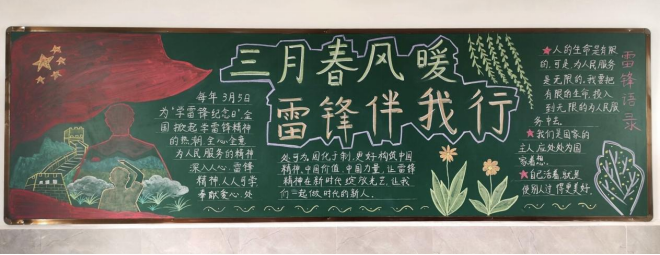 三月春风暖
雷锋伴我行
每年3月5日
为"学雷锋纪念日",全
国掀起学雷锋精神
的热潮,全心全意
为人民服务的精神
深入人心,雷锋
精神,人人可学
奉献爱心,处
处可为,固化于制,更好构筑中国
精神,中国价值,中国力量,让雷锋
精神在新时代绽放光芒,让我
们一起做时代的新人。
雷锋语录
★人的生命是有限
的,可是,为人民服务
是无限的,我要把
有限的生命,投入
到无限的为人民服
务中去。
★我们是国家的
主人,应处处为国
家着想。
★自己活着,就是
使别人过得更美好。